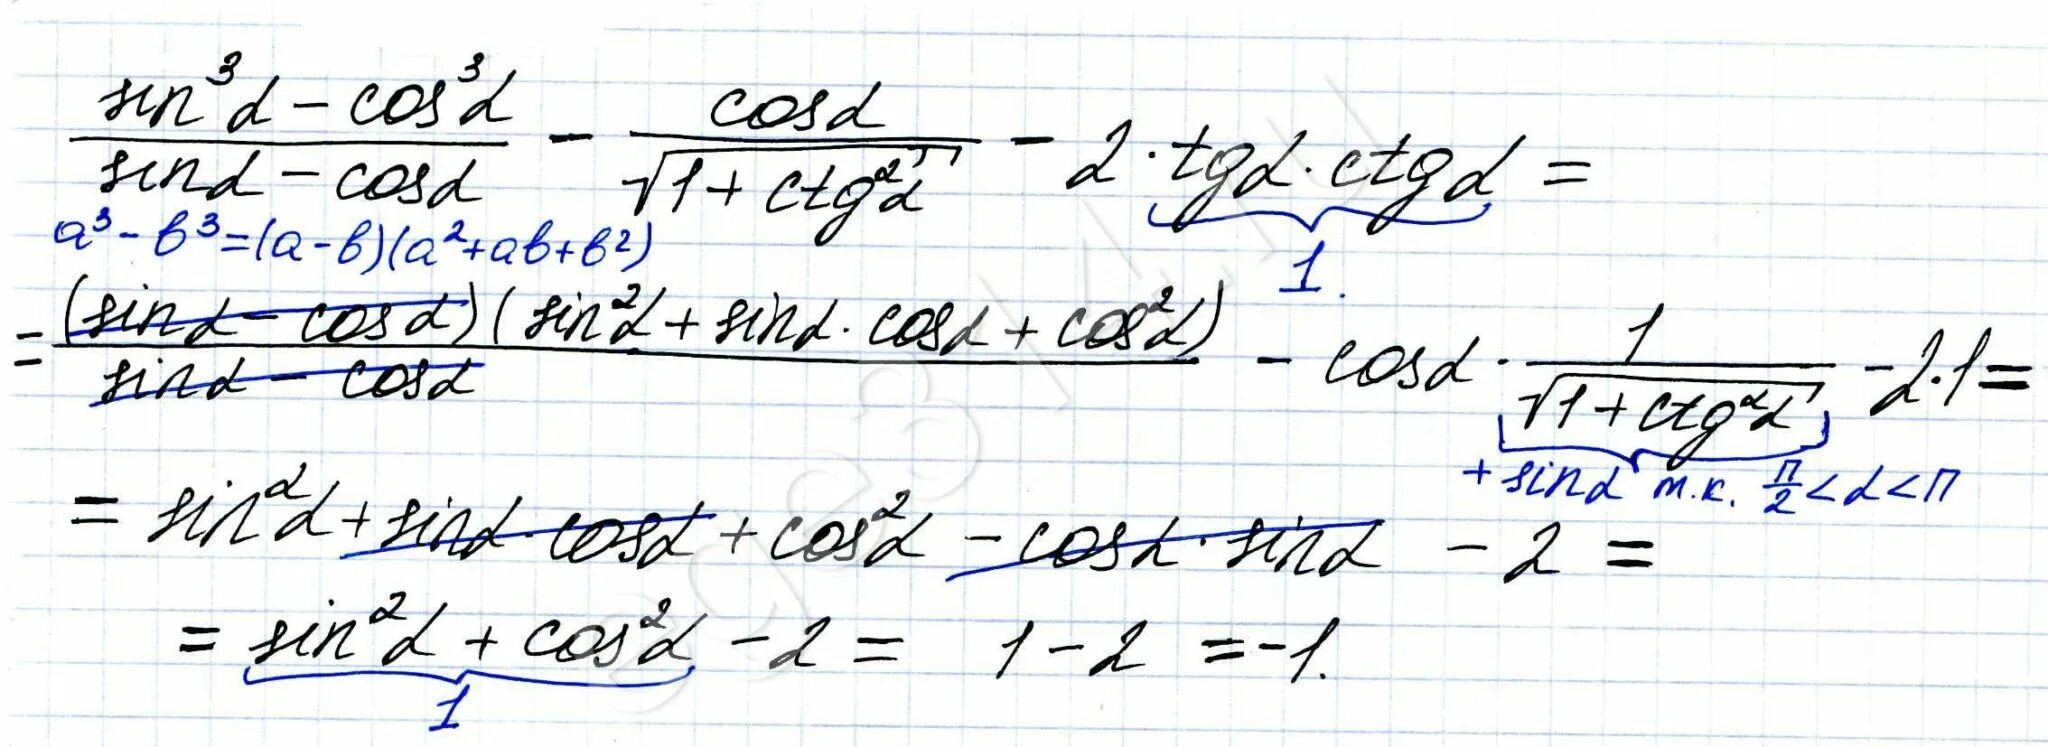 (sin³α − cos³α)/(sinα − cosα) − cosα/√(1+ctg²α) − 2·tgα·ctgα =
a³−b³=(a−b)(a²+ab+b²)
1.
= (sinα − cosα)(sin²α + sinα·cosα + cos²α)/(sinα − cosα) − cosα · 1/√(1+ctg²α) − 2·1 =
+ sinα т.к. π/2 < α < π
= sin²α + sinα·cosα + cos²α − cosα·sinα − 2 =
= sin²α + cos²α − 2 = 1 − 2 = −1.
1